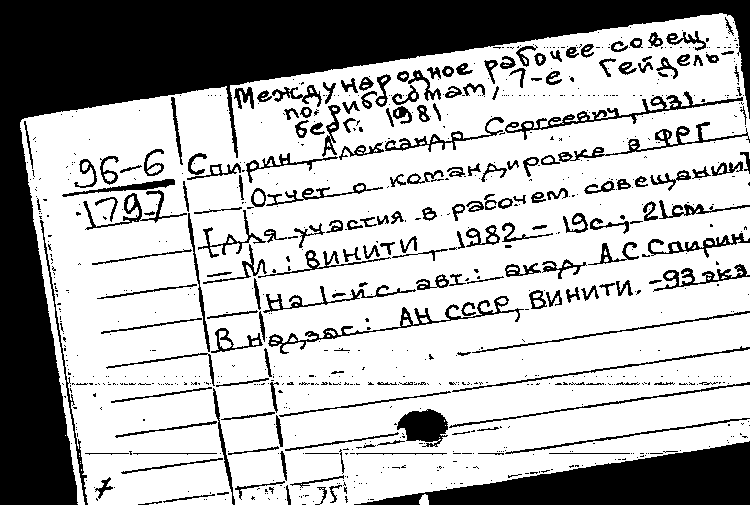 Международное рабочее совещ.
по рибосомам, 7-е. Гейдель-
берг. 1981
96-6
1797
Спирин, Александр Сергеевич, 1931.
Отчет о командировке в ФРГ
[для участия в рабочем совещании]
– М.: ВИНИТИ, 1982. – 19с.; 21см.
На 1-й с. авт.: акад. А.С.Спирин
В надзаг.: АН СССР, ВИНИТИ. – 93 экз